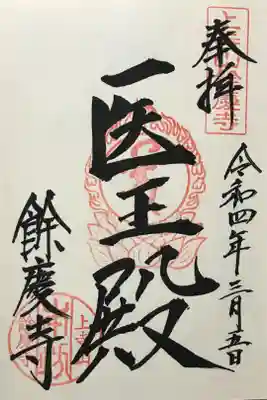 奉拝
令和四年三月五日
医王殿
餘慶寺